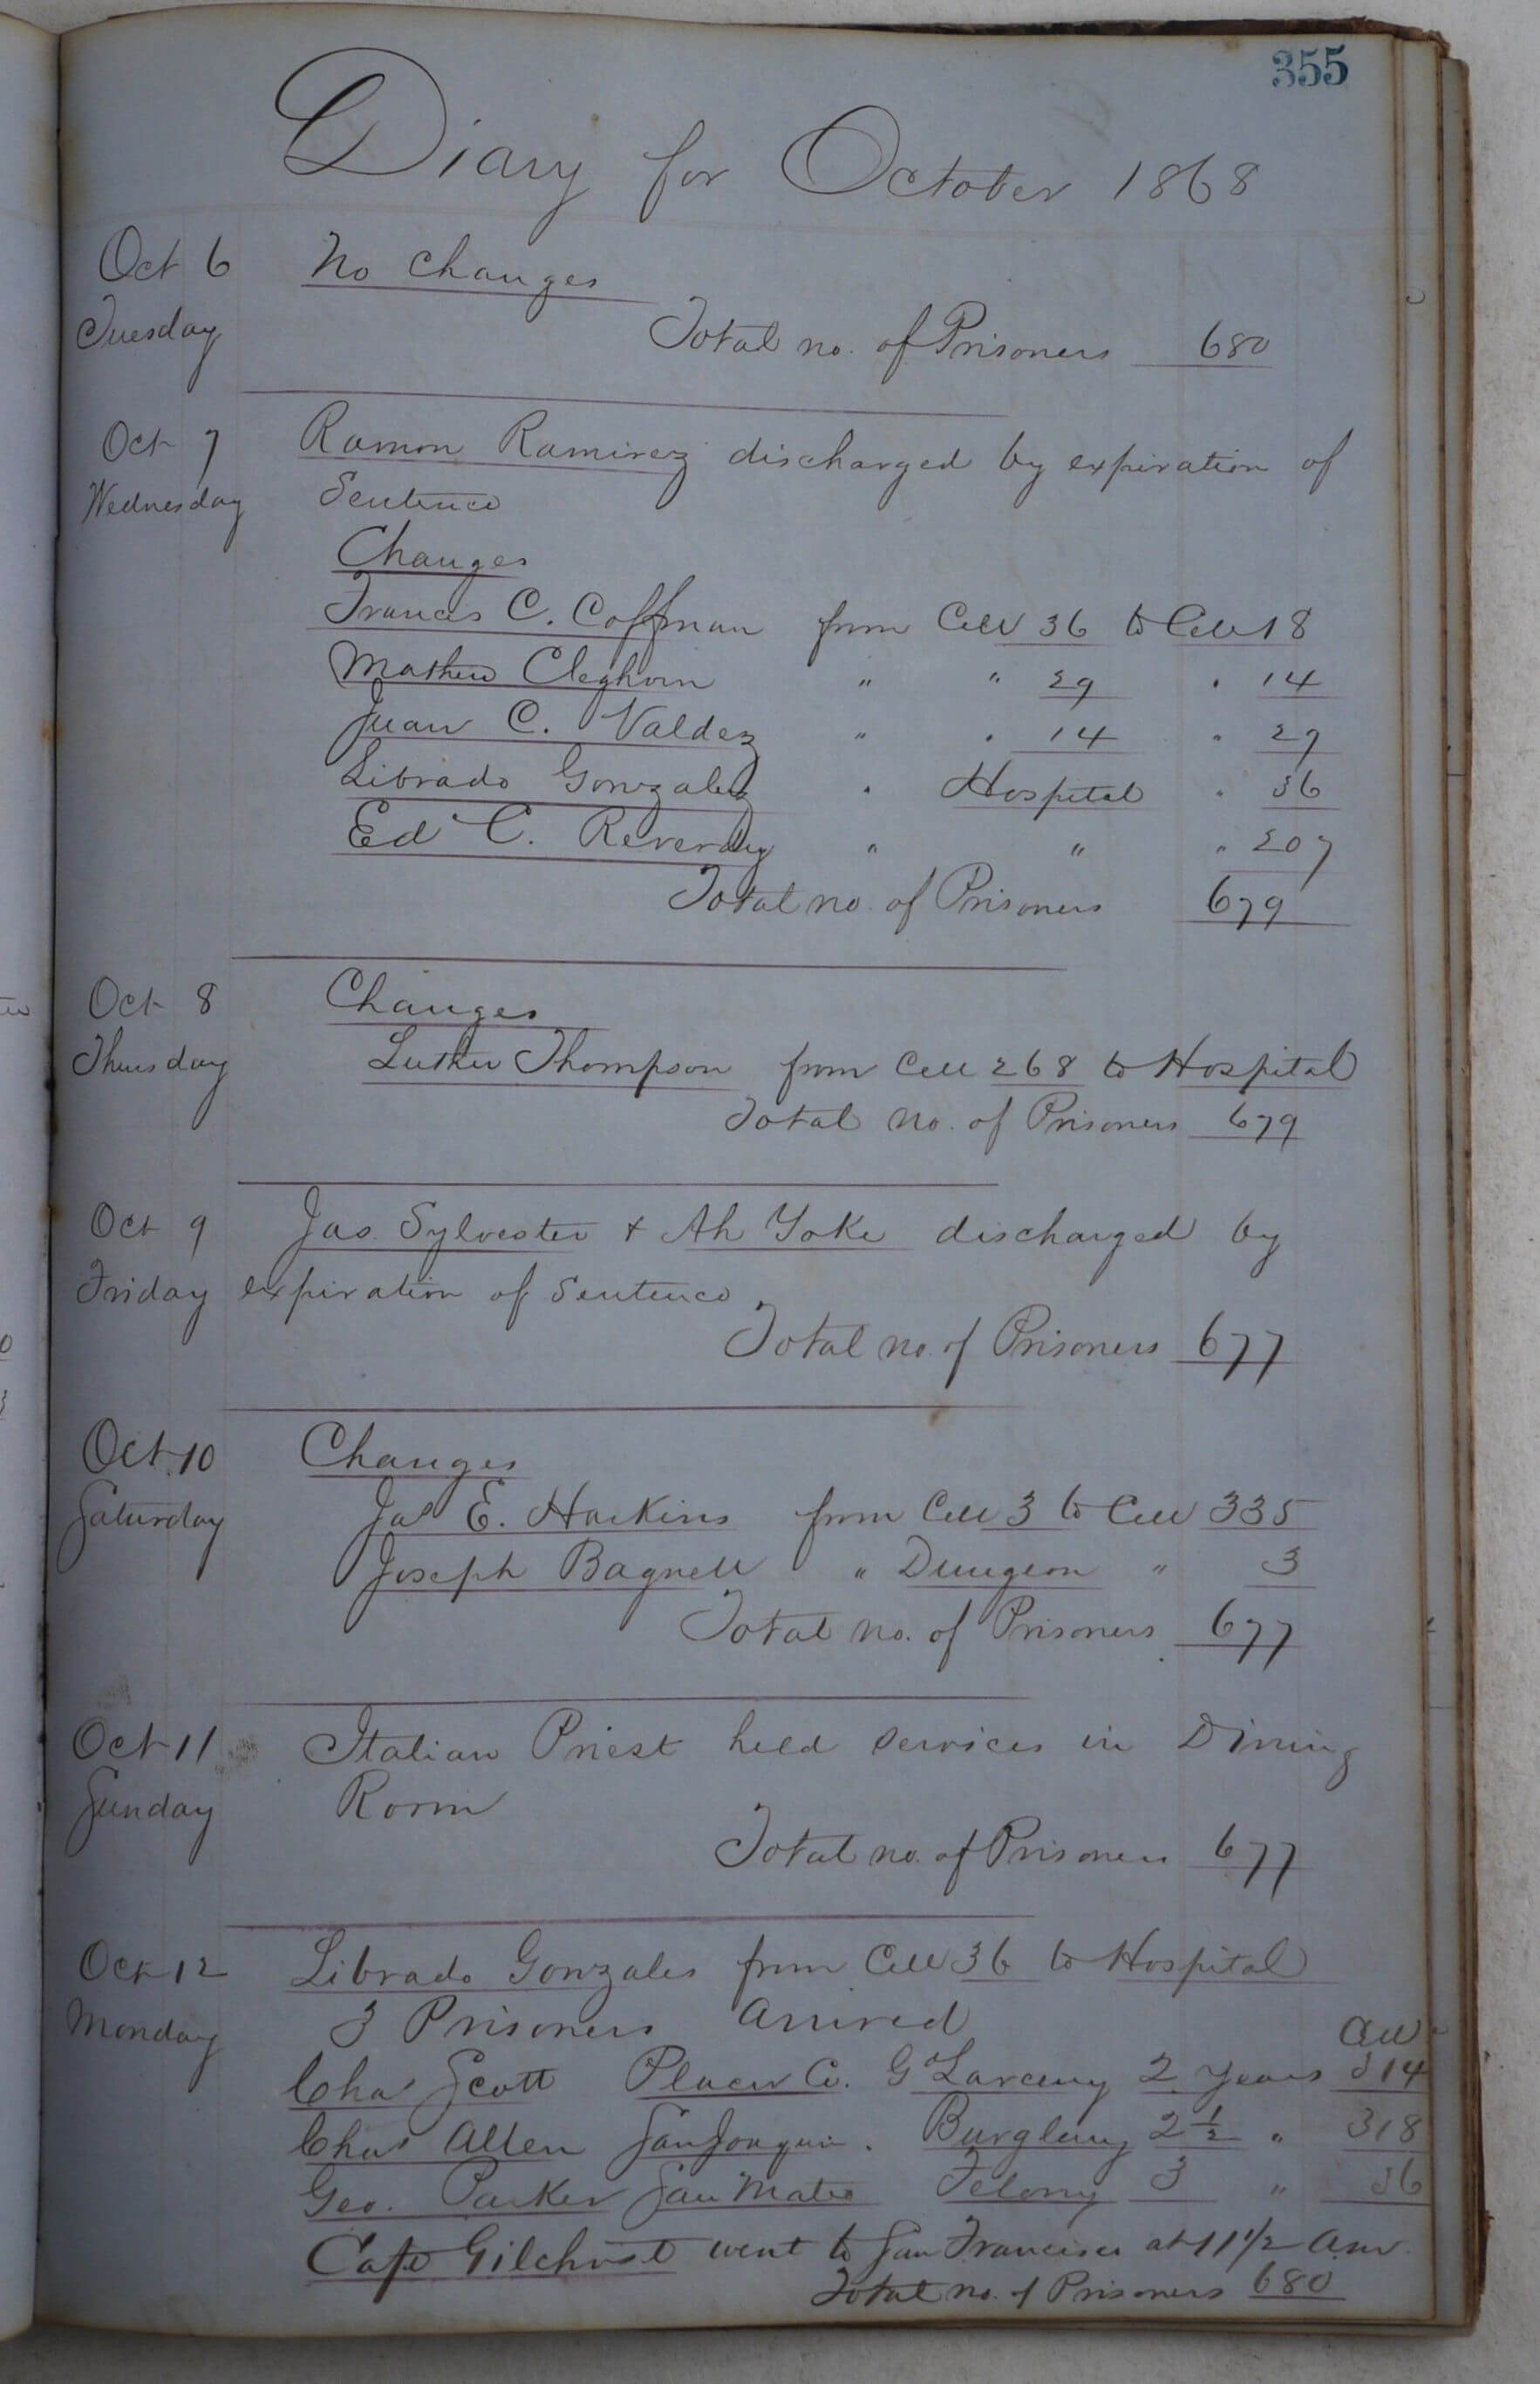 355
Diary for October 1868
Oct 6 No Changes
Tuesday Total no. of Prisoners 680
Oct 7 Ramon Ramirez discharged by expiration of
Wednesday Sentence
Changes
Francis C. Coffman from Cell 36 to Cell 18
Mathew Cleghorn " " 29 " 14
Juan C. Valdez " " 14 " 29
Librado Gonzalez " Hospital " 36
Ed C. Reverdy " " " 207
Total no. of Prisoners 679
Oct 8 Changes
Thursday Luther Thompson from Cell 268 to Hospital
Total no. of Prisoners 679
Oct 9 Jas. Sylvester & Ah Yoke discharged by
Friday expiration of Sentence
Total no. of Prisoners 677
Oct. 10 Changes
Saturday Jas E. Harkins from Cell 3 to Cell 335
Joseph Bagnell " Dungeon " 3
Total no. of Prisoners 677
Oct 11 Italian Priest held services in Dining
Sunday Room
Total no. of Prisoners 677
Oct 12 Librado Gonzales from Cell 36 to Hospital
Monday 3 Prisoners Arrived Cell
Chas Scott Placer Co. Gd Larceny 2 Years 314
Chas Allen San Joaquin. Burglary 2 1/2 " 318
Geo. Parker San Mateo Felony 3 " 36
Capt Gilchrist went to San Francisco at 11 1/2 am.
Total no. of Prisoners 680